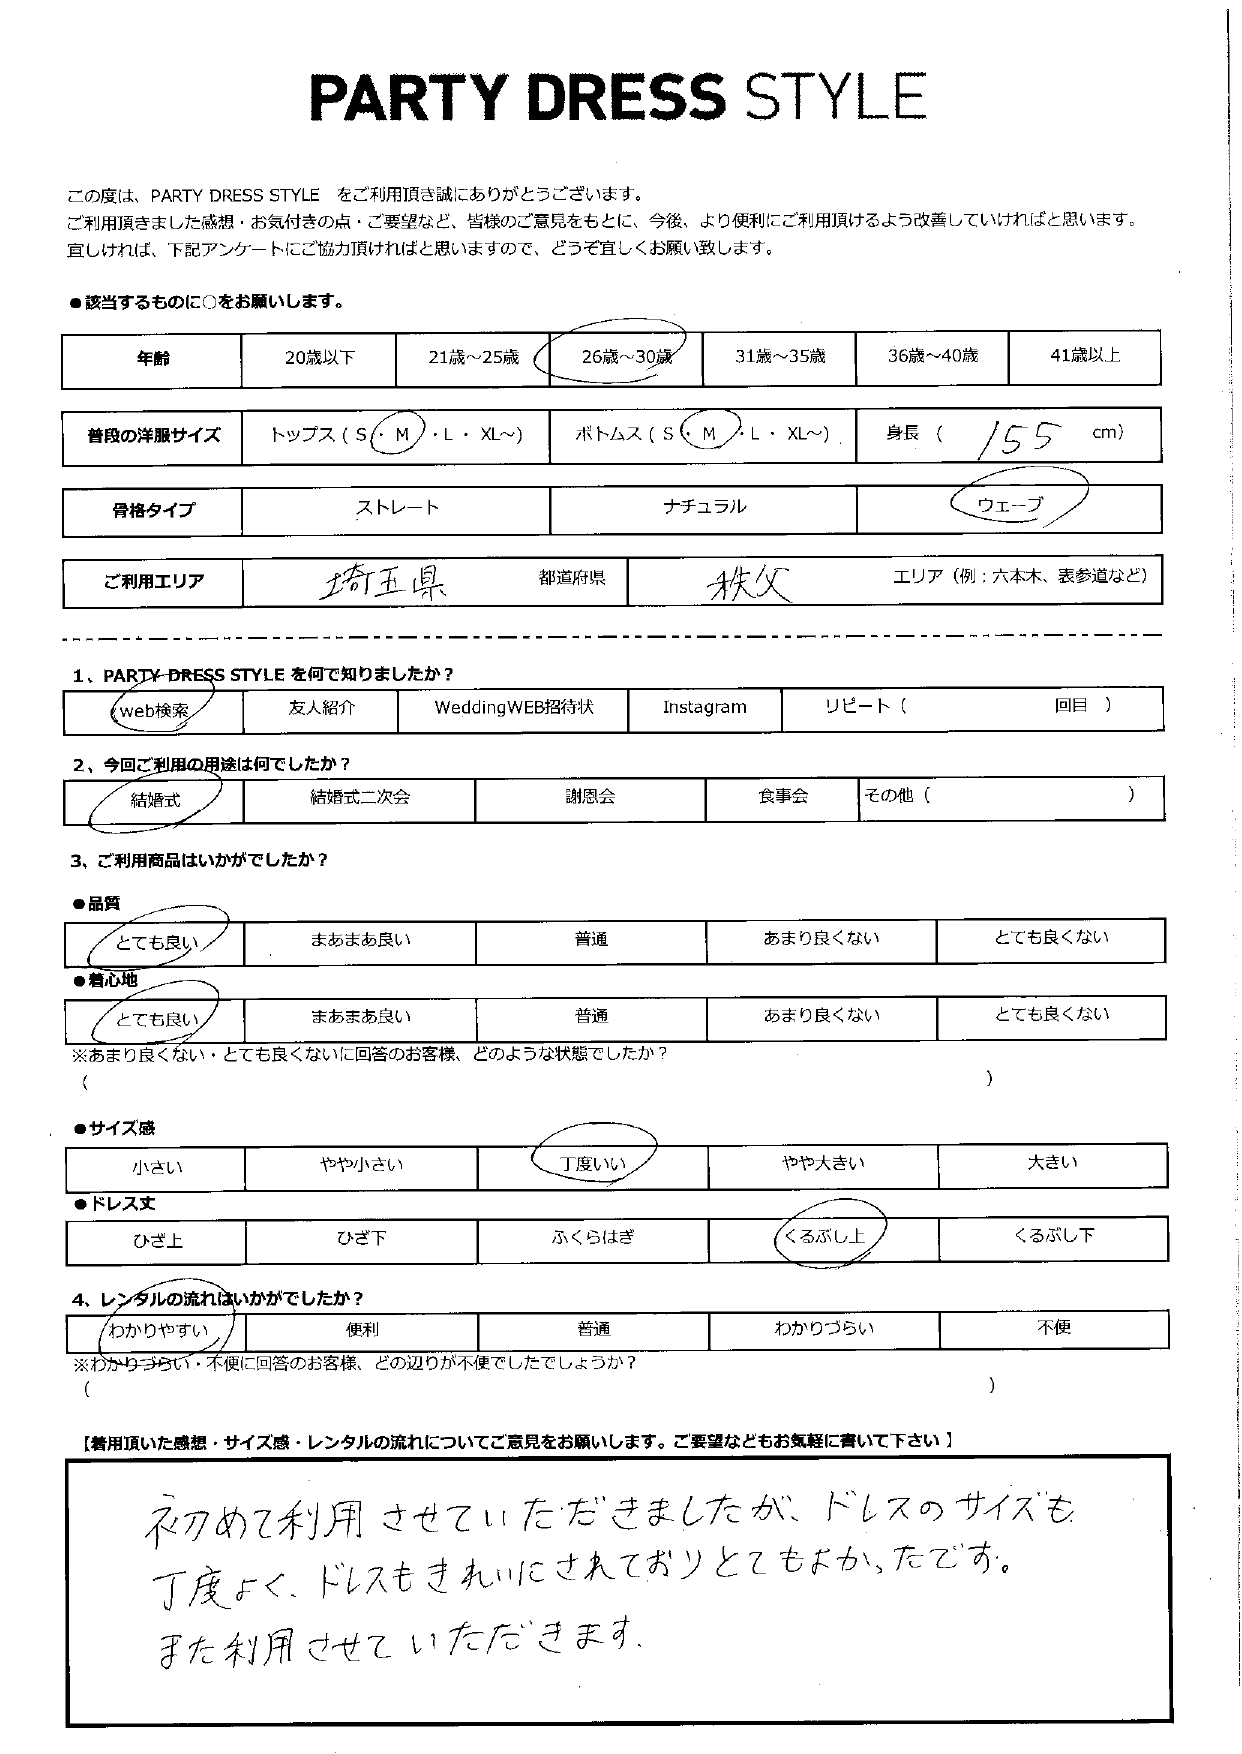 PARTY DRESS STYLE
この度は、PARTY DRESS STYLE をご利用頂き誠にありがとうございます。
ご利用頂きました感想・お気付きの点・ご要望など、皆様のご意見をもとに、今後、より便利にご利用頂けるよう改善していければと思います。
宜しければ、下記アンケートにご協力頂ければと思いますので、どうぞ宜しくお願い致します。
●該当するものに○をお願いします。
年齢 20歳以下 21歳～25歳 26歳～30歳 31歳～35歳 36歳～40歳 41歳以上
普段の洋服サイズ トップス ( S ・ M ・ L ・ XL～) ボトムス ( S ・ M ・ L ・ XL～) 身長 ( 155 cm)
骨格タイプ ストレート ナチュラル ウェーブ
ご利用エリア 埼玉県 都道府県 秩父 エリア（例：六本木、表参道など）
1、PARTY DRESS STYLE を何で知りましたか？
web検索 友人紹介 WeddingWEB招待状 Instagram リピート（ 回目 ）
2、今回ご利用の用途は何でしたか？
結婚式 結婚式二次会 謝恩会 食事会 その他（ ）
3、ご利用商品はいかがでしたか？
●品質
とても良い まあまあ良い 普通 あまり良くない とても良くない
●着心地
とても良い まあまあ良い 普通 あまり良くない とても良くない
※あまり良くない・とても良くないに回答のお客様、どのような状態でしたか？
（ ）
●サイズ感
小さい やや小さい 丁度いい やや大きい 大きい
●ドレス丈
ひざ上 ひざ下 ふくらはぎ くるぶし上 くるぶし下
4、レンタルの流れはいかがでしたか？
わかりやすい 便利 普通 わかりづらい 不便
※わかりづらい・不便に回答のお客様、どの辺りが不便でしたでしょうか？
（ ）
【着用頂いた感想・サイズ感・レンタルの流れについてご意見をお願いします。ご要望などもお気軽に書いて下さい 】
初めて利用させていただきましたが、ドレスのサイズも
丁度よく、ドレスもきれいにされておりとてもよかったです。
また利用させていただきます。